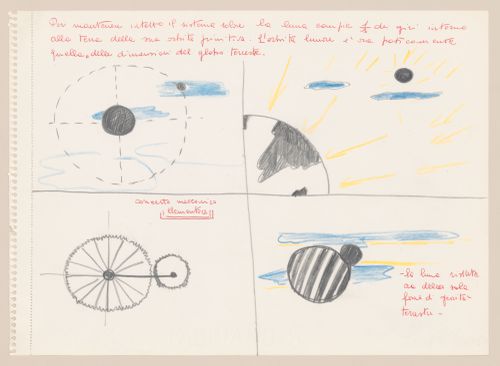 Per mantenere intatto il sistema solare la luna compie di giri intorno
alla terra della sua orbita primitiva. L'orbita lunare è ora praticamente
quella delle dimensioni del globo terrestre.
concetto meccanico
elementare
- la luna
sola
forza di gravità
terrestre -